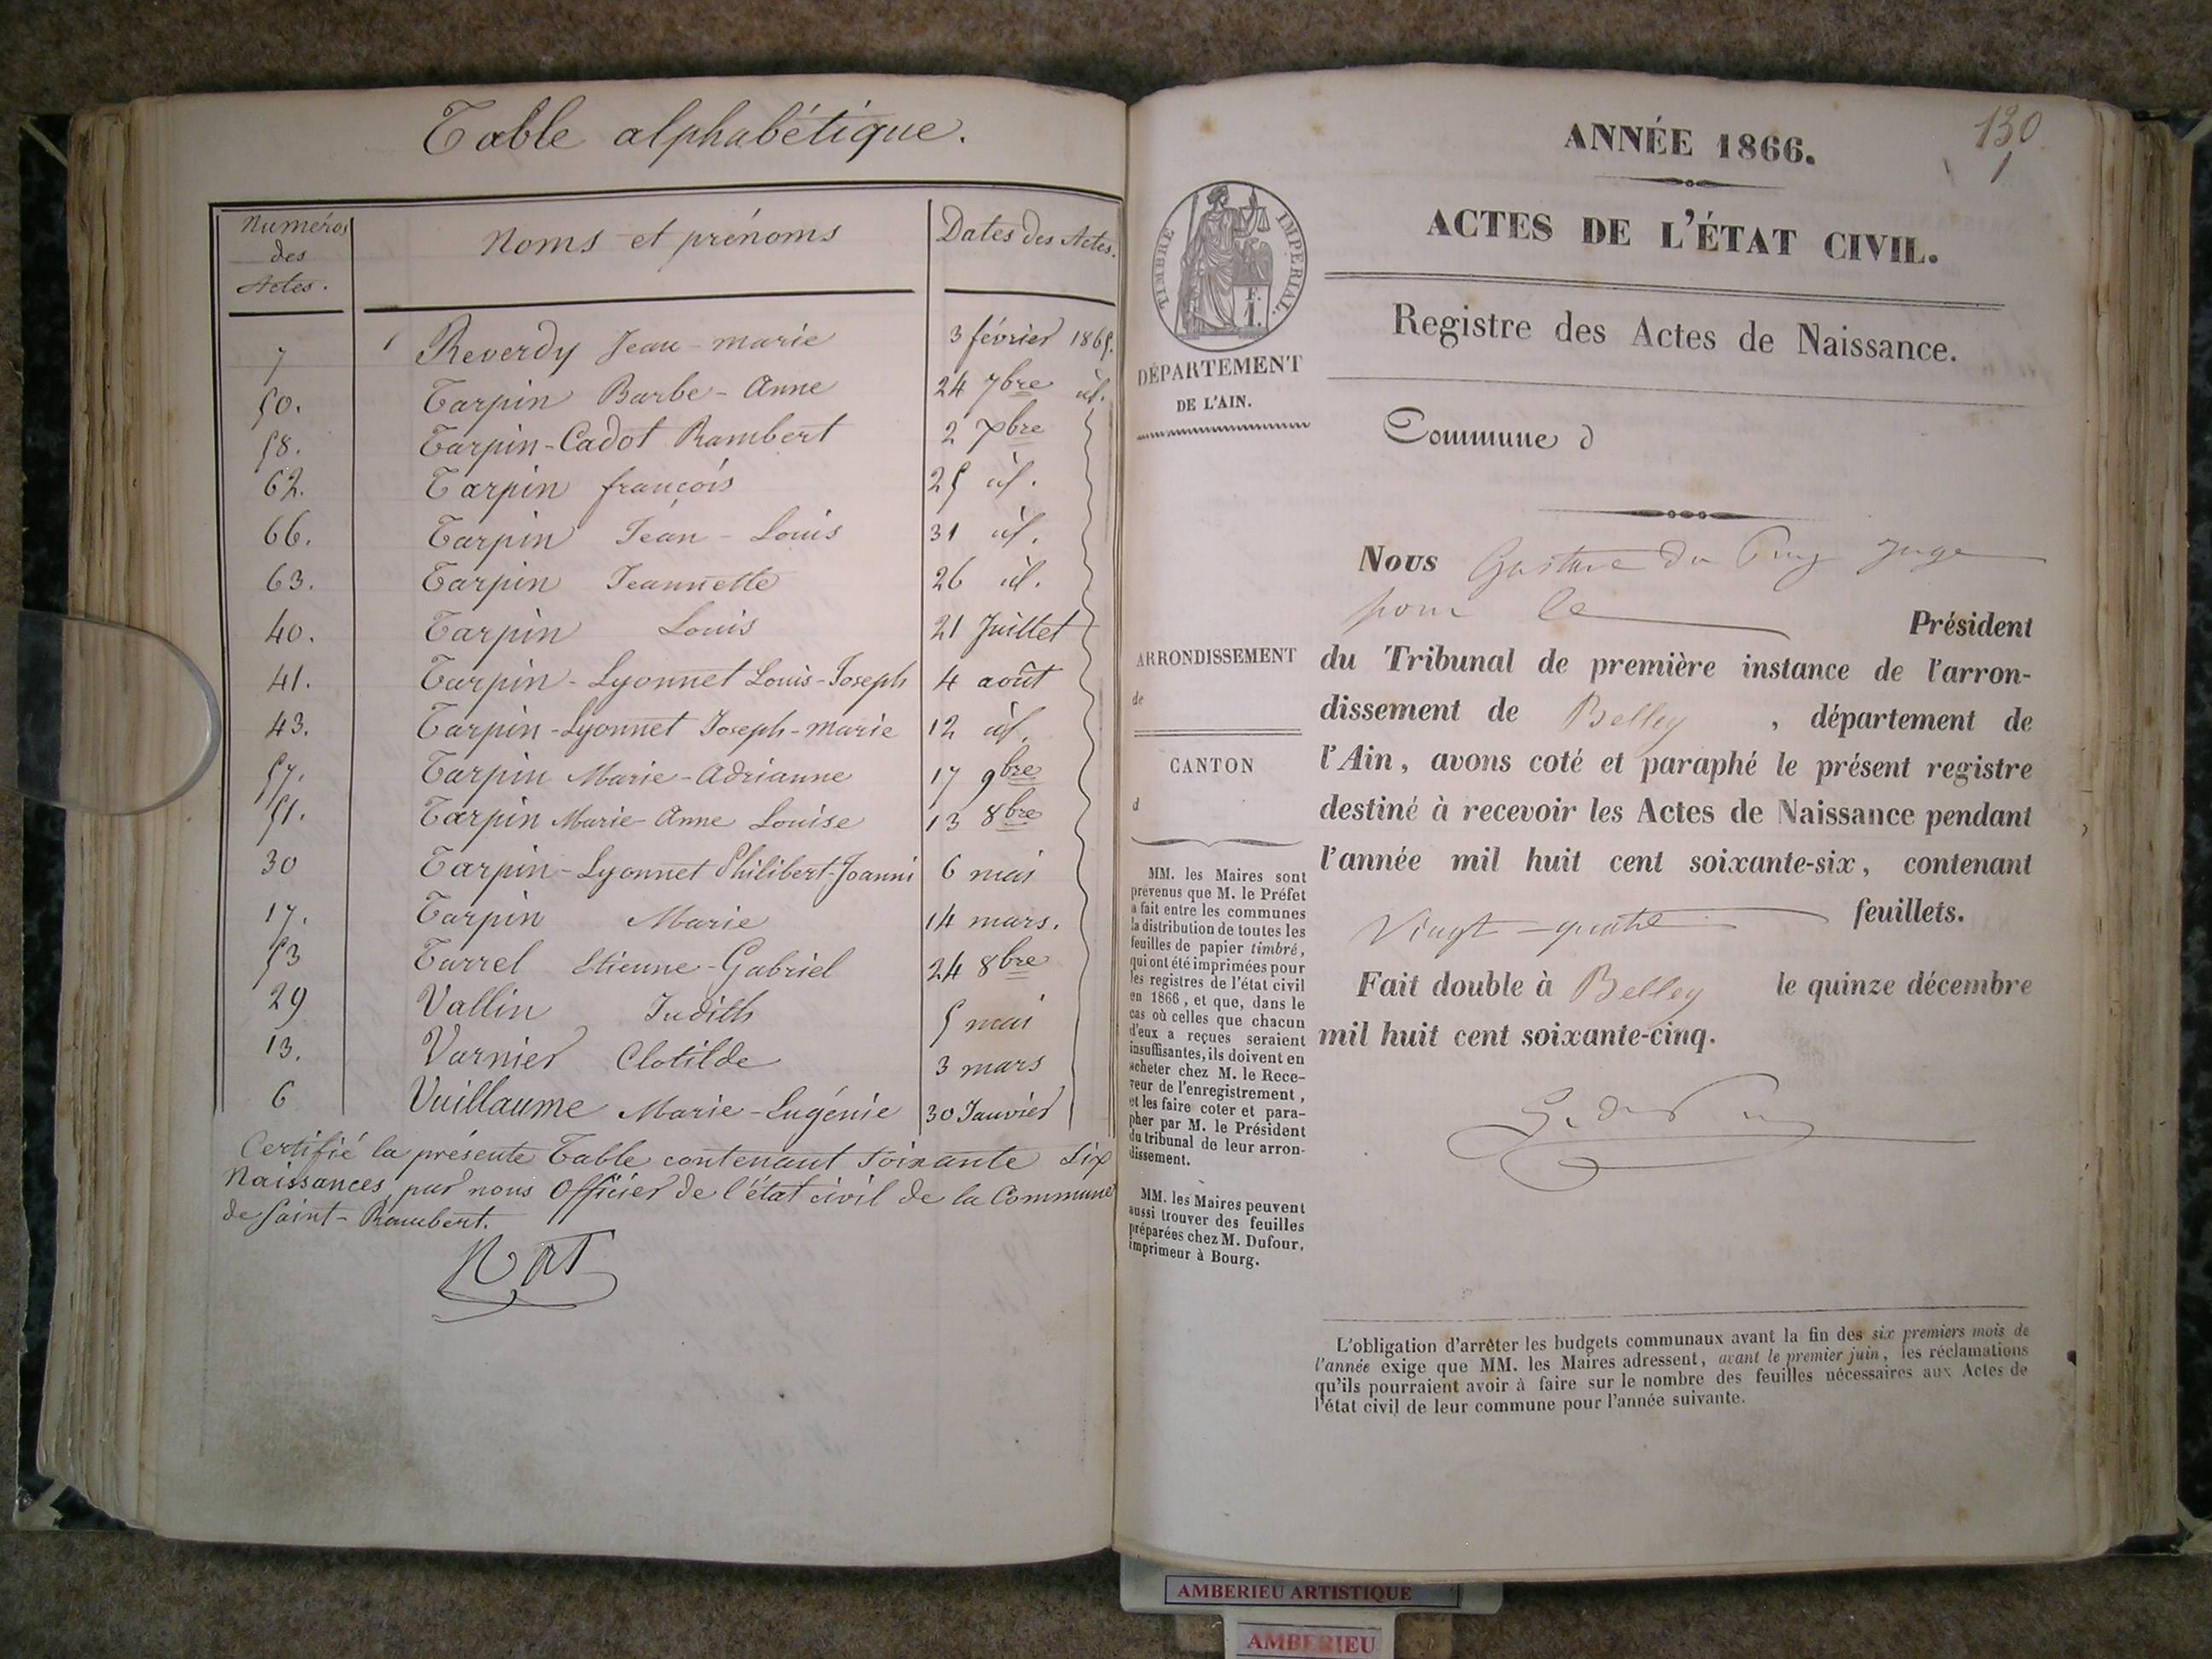 Table alphabétique.
Numéros des Actes. Noms et prénoms Dates des Actes.
7 Reverdy Jean-marie 3 février 1865.
50. Tarpin Barbe-Anne 24 7bre id.
58. Tarpin-Cadot Rambert 2 Xbre
62. Tarpin françois 25 id.
66. Tarpin Jean-Louis 31 id.
63. Tarpin Jeannette 26 id.
40. Tarpin Louis 21 Juillet
41. Tarpin-Lyonnet Louis-Joseph 4 août
43. Tarpin-Lyonnet Joseph-marie 12 id.
57. Tarpin Marie-Adrianne 17 9bre
51. Tarpin Marie-Anne Louise 13 8bre
30 Tarpin-Lyonnet Philibert-Joanni 6 mai
17. Tarpin Marie 14 mars.
53 Turrel Etienne-Gabriel 24 8bre
29 Vallin Judith 5 mai
13. Varnier Clotilde 3 mars
6 Vuillaume Marie-Eugénie 30 Janvier
Certifié la présente Table contenant soixante six
Naissances, par nous Officier de l'état civil de la Commune
de Saint-Rambert.
130
1
ANNÉE 1866.
ACTES DE L'ÉTAT CIVIL.
TIMBRE IMPÉRIAL.
F.
1.
DÉPARTEMENT
DE L'AIN.
Registre des Actes de Naissance.
Commune d
ARRONDISSEMENT
de
CANTON
d
MM. les Maires sont
prévenus que M. le Préfet
a fait entre les communes
la distribution de toutes les
feuilles de papier timbré,
qui ont été imprimées pour
les registres de l'état civil
en 1866, et que, dans le
cas où celles que chacun
d'eux a reçues seraient
insuffisantes, ils doivent en
acheter chez M. le Rece-
veur de l'enregistrement,
et les faire coter et para-
pher par M. le Président
du tribunal de leur arron-
dissement.
MM. les Maires peuvent
aussi trouver des feuilles
préparées chez M. Dufour,
imprimeur à Bourg.
Nous Gustave du Puy Juge
pour le Président
du Tribunal de première instance de l'arron-
dissement de Belley, département de
l'Ain, avons coté et paraphé le présent registre
destiné à recevoir les Actes de Naissance pendant
l'année mil huit cent soixante-six, contenant
Vingt-quatre feuillets.
Fait double à Belley le quinze décembre
mil huit cent soixante-cinq.
L'obligation d'arrêter les budgets communaux avant la fin des six premiers mois de
l'année exige que MM. les Maires adressent, avant le premier juin, les réclamations
qu'ils pourraient avoir à faire sur le nombre des feuilles nécessaires aux Actes de
l'état civil de leur commune pour l'année suivante.
AMBERIEU ARTISTIQUE
AMBERIEU